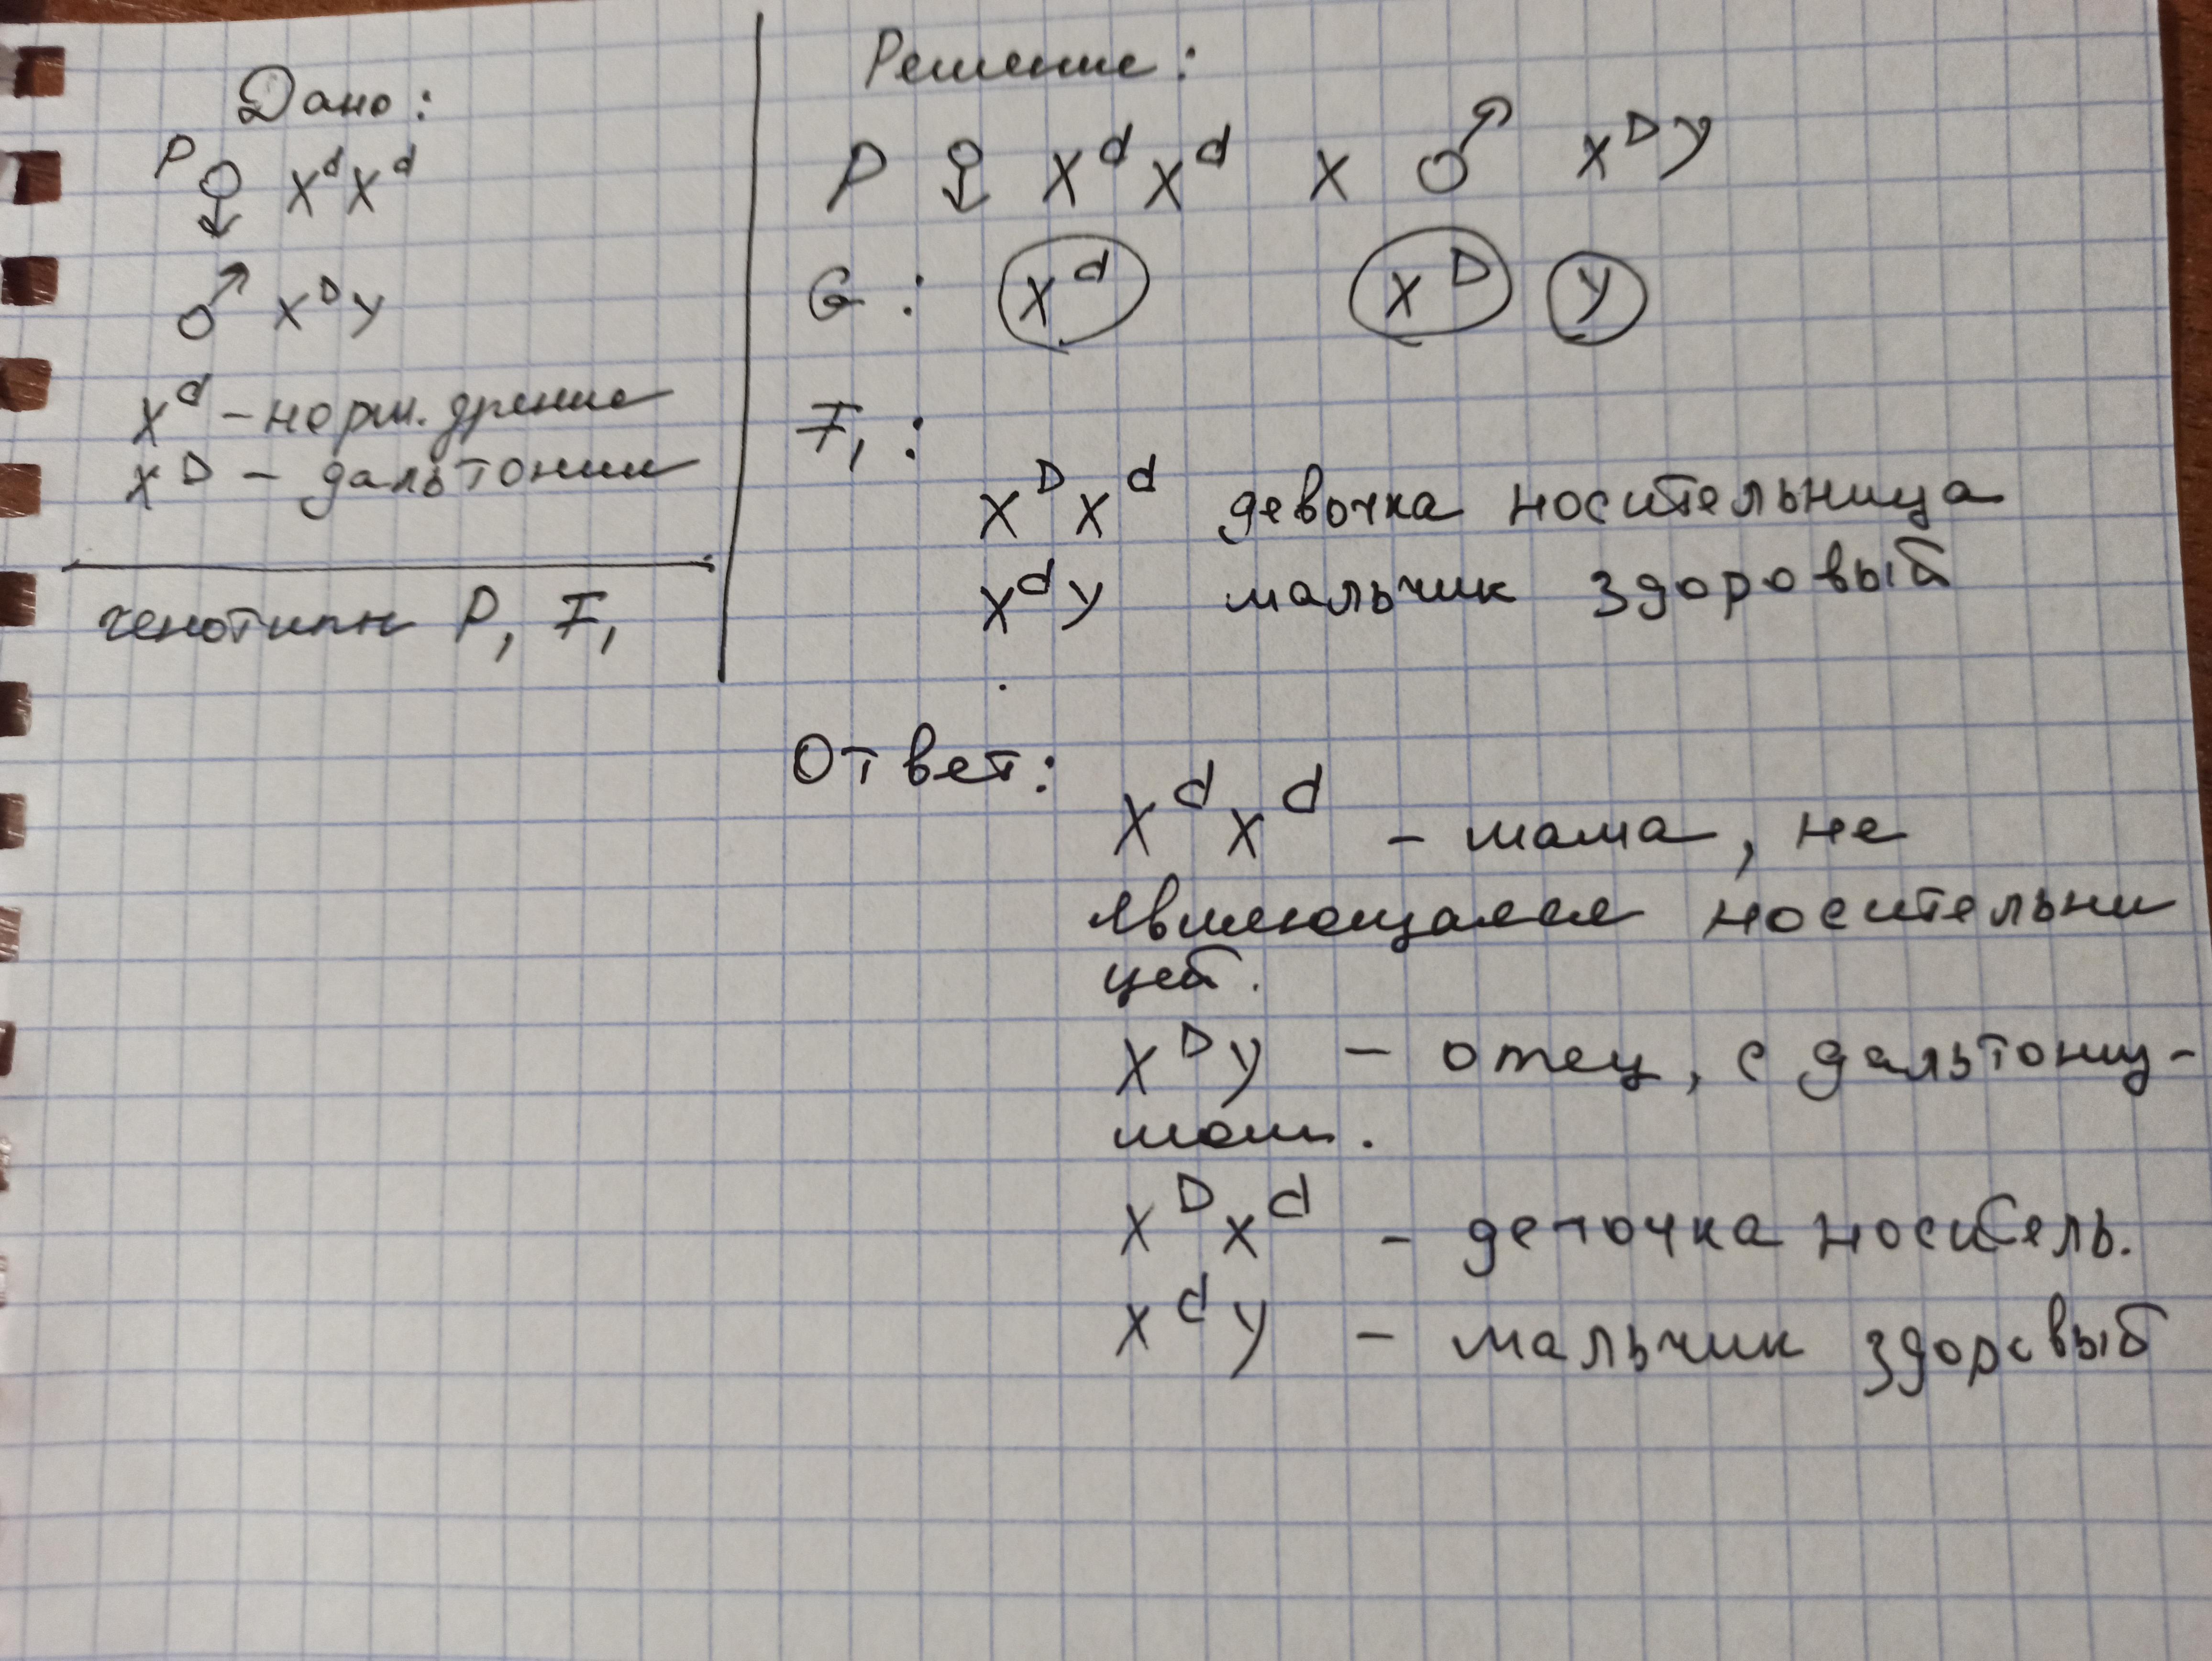 Дано:
P ♀ XᵈXᵈ
♂ XᴰY
Xᵈ – норм. зрение
Xᴰ – дальтоник
генотипы P, F₁
Решение:
P ♀ XᵈXᵈ X ♂ XᴰY
G: Xᵈ Xᴰ Y
F₁:
XᴰXᵈ девочка носительница
XᵈY мальчик здоровый
Ответ:
XᵈXᵈ – мама, не
являющаяся носительни
цей.
XᴰY – отец, с дальтониз-
мом.
XᴰXᵈ – деточка носитель.
XᵈY – мальчик здоровый